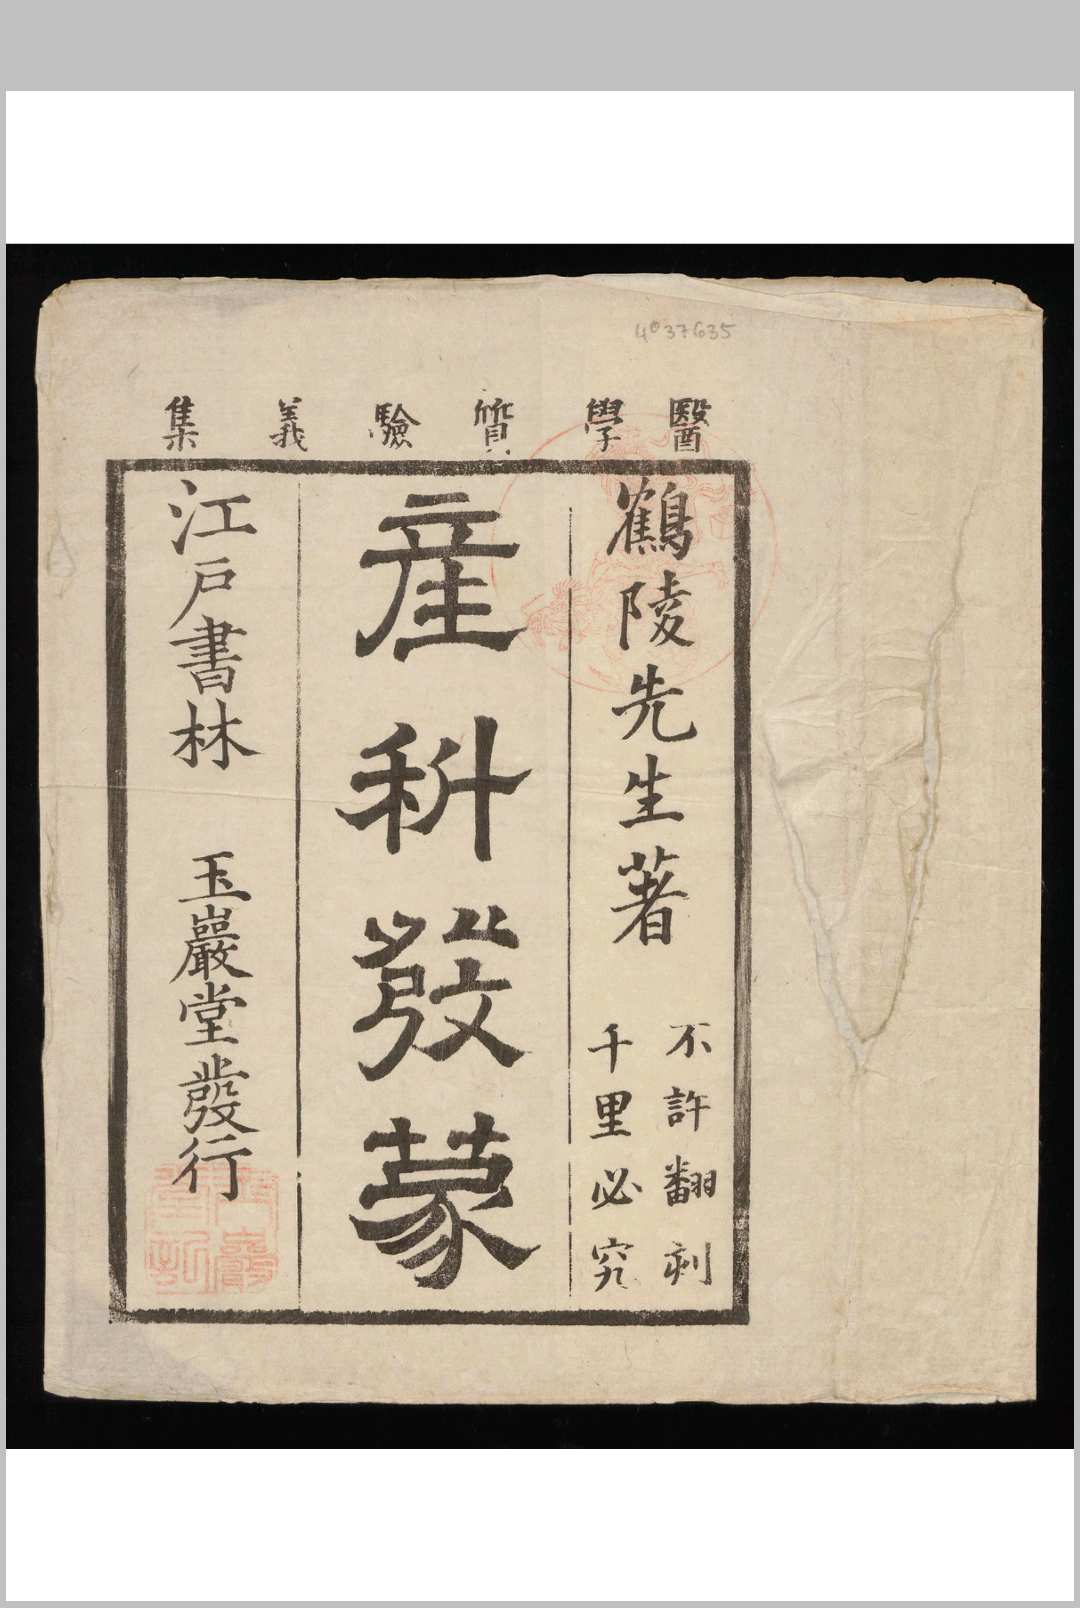 4037635
醫學質驗義集
鶴陵先生著
不許翻刻
千里必究
産科發蒙
江戸書林 玉巖堂發行